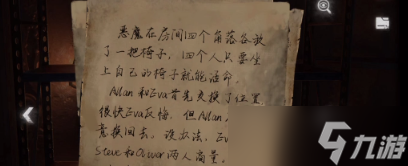 恶魔在房间四个角落各放
了一把椅子，四个人只要坐
上自己的椅子就能活命，
Allan 和Eva首先交换了位置，
很快Eva反悔，但Allan，
意换回去，没办法，Ev
Steve和Oliver两人商量，
九游